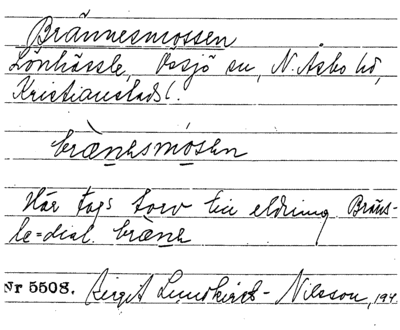 Brännesmossen
Lönhässle, Össjö sn, N. Åsbo hd,
Kristianstads l.
brænesmosen
Här togs torv till eldning Bräns-
le = dial. bræne
Nr 5508. Birgit Lundkvist - Nilsson, 194